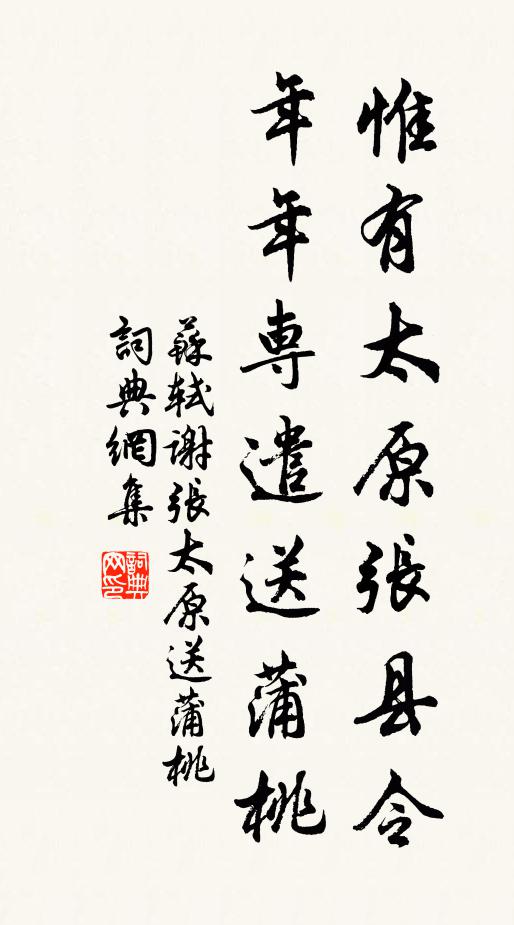 惟有太原張县令
年年専遣送蒲桃
蘇軾謝張太原送蒲桃
詞典網集
詞典网印